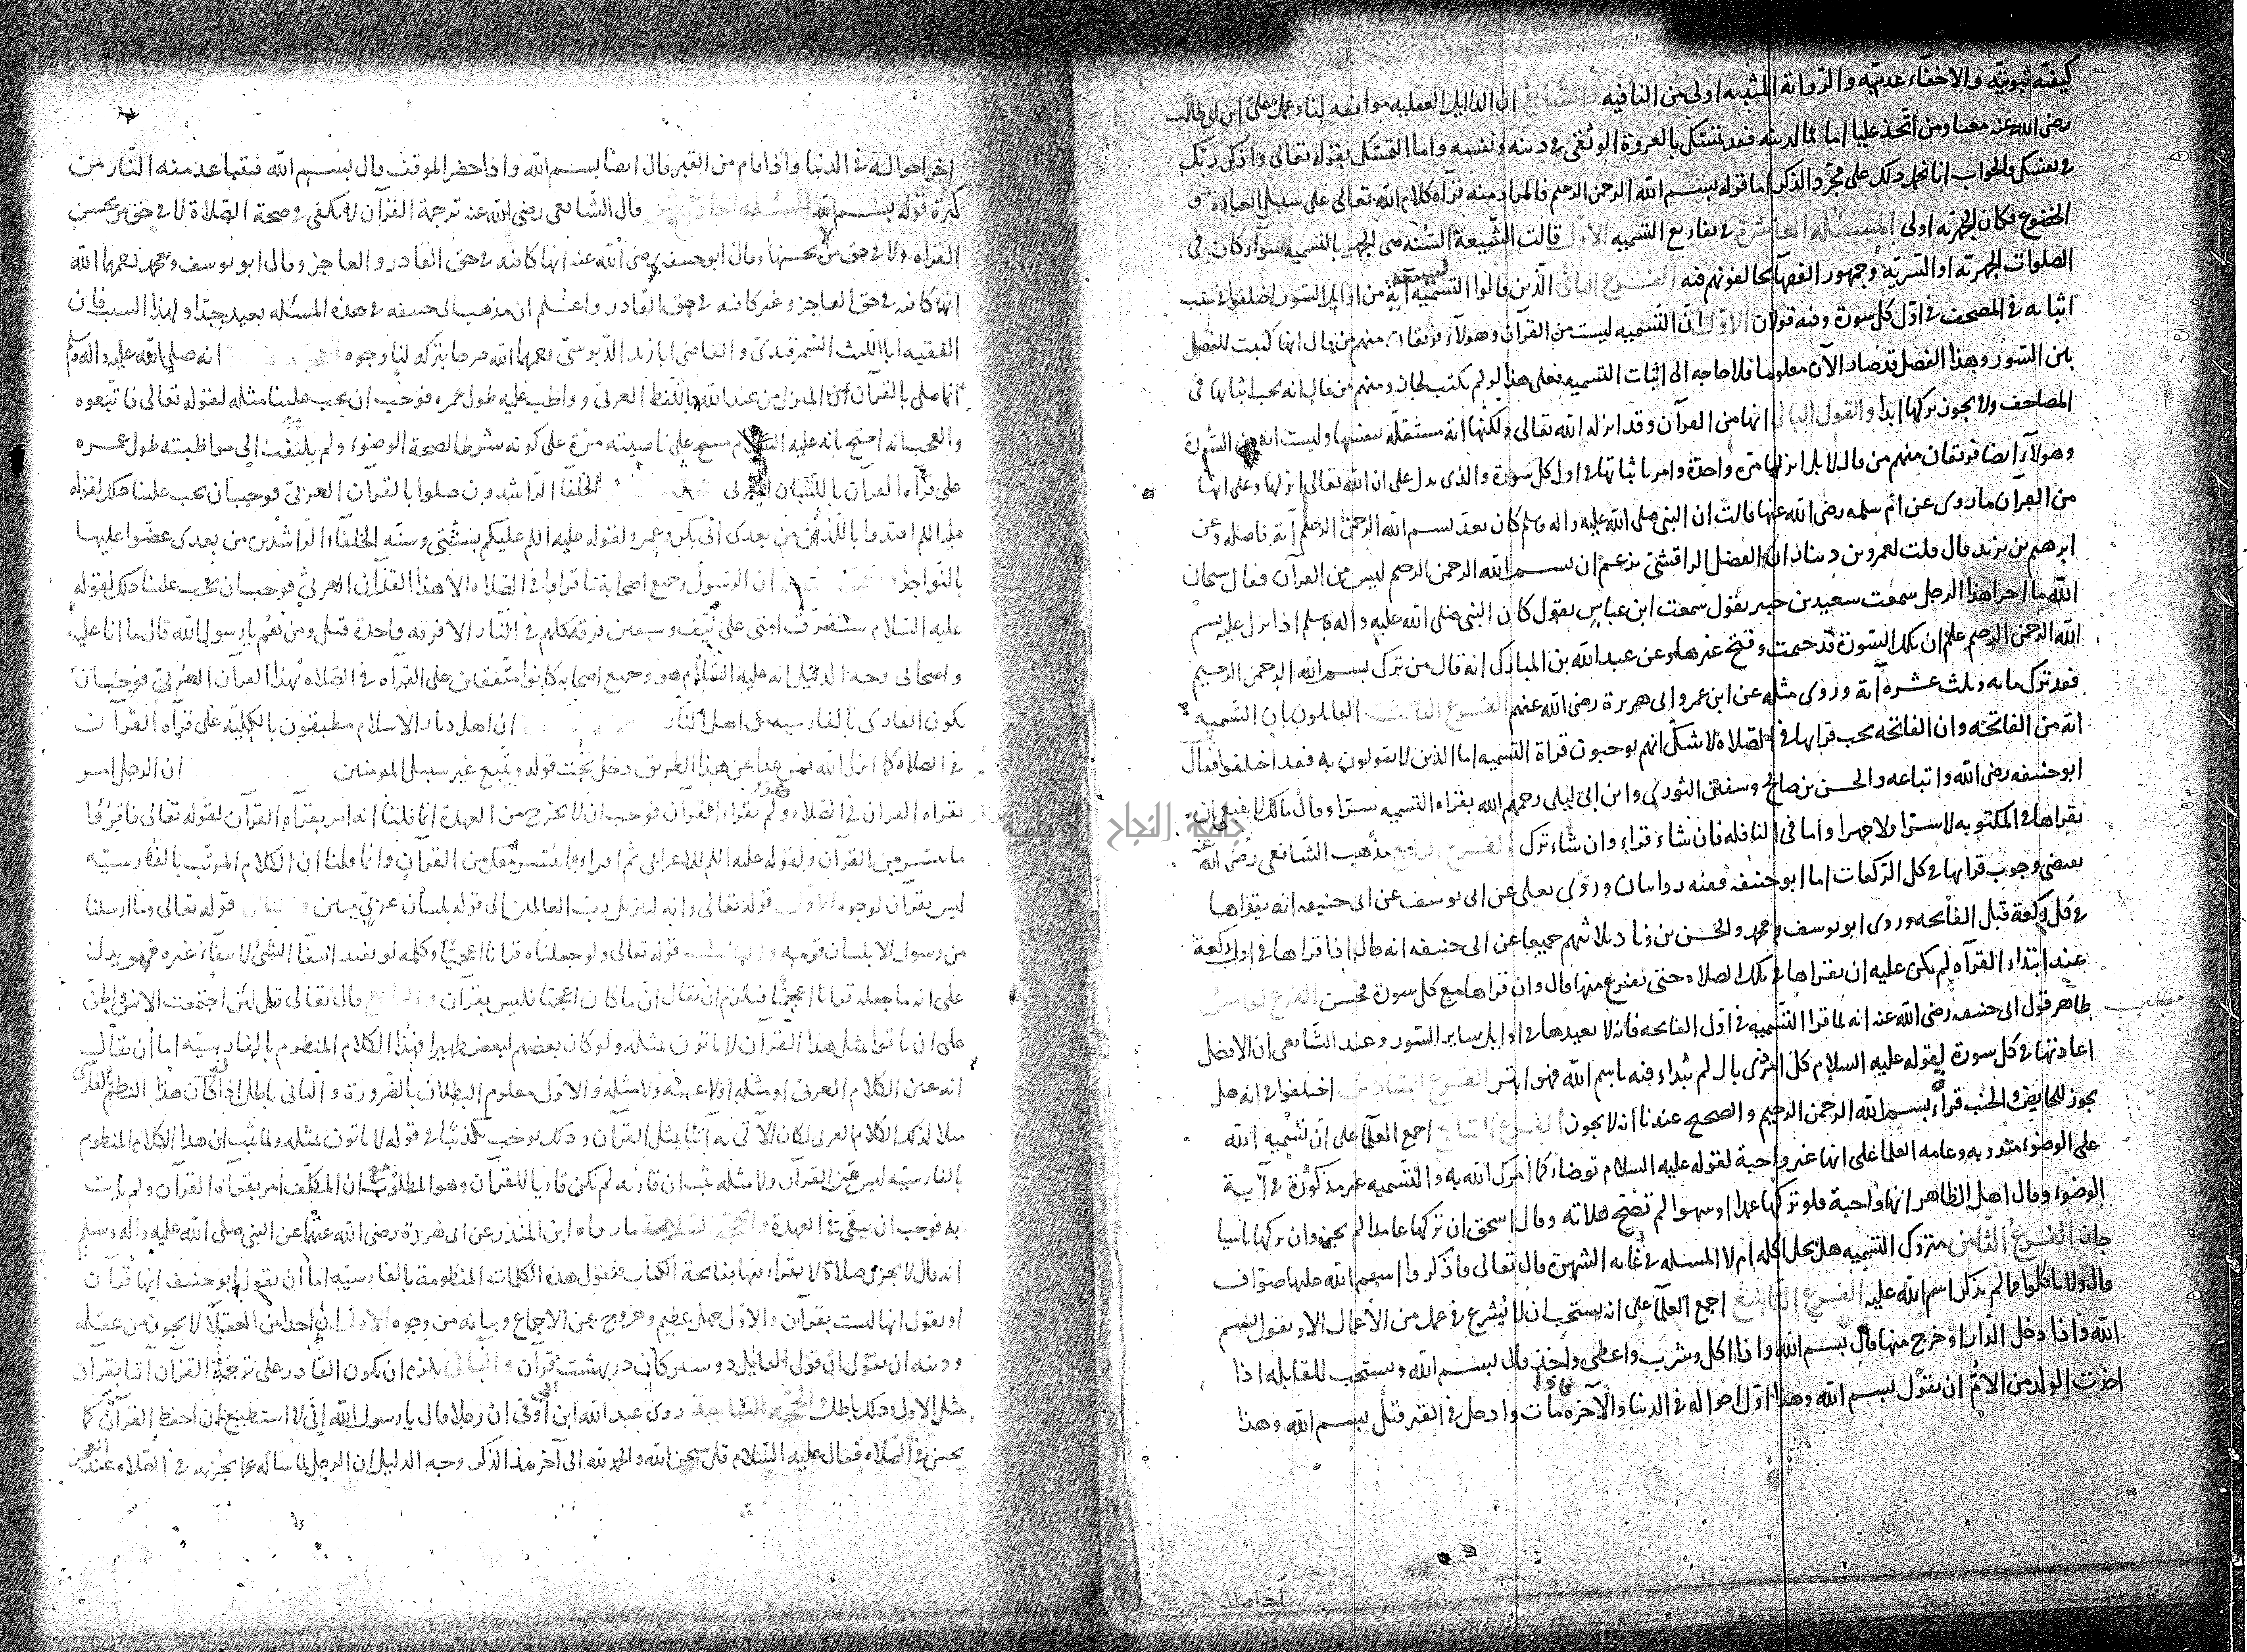 كيفية ثبوتية والاخفاء عدميه والرواية المثبتة اولى من النافيه والسابع ان الدلايل العقليه موافقه لنا وعمل على ابن ابي طالب
رضى الله عنه معنا ومن اتخذ عليا اماما لدينه فقد تمسك بالعروة الوثقى في دينه ونفسه واما التمسك بقوله تعالى واذكر ربك
في نفسك فالجواب انا نحمل ذلك على مجرد الذكر اما قوله بسم الله الرحمن الرحيم فالمراد منه قرآة كلام الله تعالى على سبيل العبادة و
الخضوع فكان الجهر به اولى المسئله العاشرة في تفاريع التسميه الاول قالت الشيعة السنه هي الجهر بالتسميه سوآء كان في
الصلوات الجهريه او السريه وجمهور الفقهآ يخالفونهم فيه الفرع الثاني الذين قالوا التسميه ليست آية من اوايل السور اختلفوا في سبب
اثباته في المصحف في اول كل سورة وفيه قولان الاول ان التسميه ليست من القرآن وهولآء فريقان منهم من قال انها كتبت للفصل
بين السور وهذا الفصل قد صار الآن معلوما فلا حاجه الى اثبات التسميه فعلى هذا لو لم تكتب لجاز ومنهم من قال انه يجب اثباتها في
المصاحف ولا يجوز تركها ابدا والقول الثاني انها من القرآن وقد انزله الله تعالى ولكنها اية مستقله بنفسها وليست اية من السورة
وهولآء ايضا فريقان منهم من قال لا بل انزلها مرة واحدة وامر باثباتها في اول كل سورة والذى يدل على ان الله تعالى انزلها وعلى انها
من القرآن ما روى عن ام سلمه رضى الله عنها قالت ان النبى صلى الله عليه واله وسلم كان يعد بسم الله الرحمن الرحيم آية فاصله وعن
ابرهيم بن يزيد قال قلت لعمرو بن دينار ان الفضل الراقشى يزعم ان بسم الله الرحمن الرحيم ليس من القرآن فقال سبحان
الله ما اجرا هذا الرجل سمعت سعيد بن جبير يقول سمعت ابن عباس يقول كان النبى صلى الله عليه واله وسلم اذا نزل عليه بسم
الله الرحمن الرحيم علم ان تلك السورة قد ختمت وفتح غيرها وعن عبد الله بن المبارك انه قال من ترك بسم الله الرحمن الرحيم
فقد ترك مايه وثلث عشرة آية وروى مثله عن ابن عمر وابى هريرة رضى الله عنهم الفرع الثالث القايلون بان التسميه
اية من الفاتحه وان الفاتحه يجب قراتها في الصلاة لا شك انهم يوجبون قراة التسميه اما الذين لا يقولون به فقد اختلفوا فقال
ابو حنيفه رضى الله واتباعه والحسن بن صالح وسفين الثورى وابن ابى ليلى رحمهم الله يقراء التسميه سرا وقال مالك لا ينبغى ان
يقراها في المكتوبه لا سرا ولا جهرا واما في النافله فان شاء قراء وان شاء ترك الفرع الرابع مذهب الشافعى رضى الله عنه
يقتضى وجوب قراتها في كل الركعات اما ابو حنيفه فعنه روايتان وروى يعلى عن ابى يوسف عن ابى حنيفه انه يقراها
في كل ركعة قبل الفاتحه وروى ابو يوسف ومحمد والحسن بن زياد ثلاثتهم جميعا عن ابى حنيفه انه قال اذا قراها في اول ركعة
عند ابتداء القرآة لم يكن عليه ان يقراها في تلك الصلاه حتى يفرغ منها قال وان قراها مع كل سورة فحسن الفرع الخامس
ظاهر قول ابى حنيفه رضى الله عنه انه لما قرا التسميه في اول الفاتحه فانه لا يعيدها في اوايل ساير السور وعند الشافعى ان الافضل
اعادتها في كل سورة لقوله عليه السلام كل امر ذى بال لم يبداء فيه باسم الله فهو ابتر الفرع السادس اختلفوا في انه هل
يجوز للحايض والجنب قرآة بسم الله الرحمن الرحيم والصحيح عندنا انه لا يجوز الفرع السابع اجمع العلمآ على ان تسميه الله
على الوضوء مندوبه وعامه العلما على انها غير واجبة لقوله عليه السلام توضا كما امرك الله به والتسميه غير مذكورة في آية
الوضوء وقال اهل الظاهر انها واجبة فلو تركها عمدا او سهوا لم تصح صلاته وقال اسحق ان تركها عامدا لم يجز وان تركها ناسيا
جاز الفرع الثامن متروك التسميه هل يحل اكله ام لا المسئله في غايه الشهرة قال تعالى فاذكروا اسم الله عليها صواف
قال ولا تاكلوا مما لم يذكر اسم الله عليه الفرع التاسع اجمع العلمآ على انه يستحب ان لا يشرع في عمل من الاعمال الا ويقول بسم
الله فاذا دخل الدار او خرج منها قال بسم الله واذا اكل وشرب واعطى واخذ قال بسم الله ويستحب للقابله اذا
اخذت الولد من الام ان تقول بسم الله وهذا اول احواله في الدنيا والآخره فاذا مات وادخل في القبر قيل بسم الله وهذا
آخر احوا
اخر احواله في الدنيا واذا قام من القبر قال ايضا بسم الله واذا حضر الموقف قال بسم الله فتتباعد منه النار من
بركة قوله بسم الله المسئله الحاديه عشر قال الشافعى رضى الله عنه ترجمة القرآن لا تكفى في صحة الصلاة لا في حق من يحسن
القراه ولا في حق من لا يحسنها وقال ابو حنيفه رضى الله عنه انها كافيه في حق القادر والعاجز وقال ابو يوسف ومحمد رحمهما الله
انها كافيه في حق العاجز وغير كافيه في حق القادر واعلم ان مذهب ابى حنيفه في هذه المسئله بعيد جدا ولهذا السبب فان
الفقيه ابا الليث السمرقندى والقاضى ابا زيد الدبوسى رحمهما الله صرحا بتركه لنا وجوه انه صلى الله عليه واله وسلم
انما صلى بالقرآن المنزل من عند الله باللفظ العربى وواظب عليه طول عمره فوجب ان يجب علينا مثله لقوله تعالى فاتبعوه
والعجب انه احتج بانه عليه السلام مسح على ناصيته مرة على كونه شرطا لصحة الوضوء ولم يلتفت الى مواظبته طول عمره
على قرآة القرآن باللسان العربى الخلفآ الراشدون صلوا بالقرآن العربى فوجب ان يجب علينا ذلك لقوله
عليه السلم اقتدوا باللذين من بعدى ابى بكر وعمر ولقوله عليه السلم عليكم بسنتى وسنه الخلفآء الراشدين من بعدى عضوا عليها
بالنواجذ ان الرسول وجميع اصحابه ما قراوا في الصلاه الا هذا القرآن العربى فوجب ان يجب علينا ذلك لقوله
عليه السلام ستفترق امتى على نيف وسبعين فرقه كلهم في النار الا فرقه واحدة قيل ومن هم يا رسول الله قال ما انا عليه
واصحابى وجه الدليل انه عليه السلام هو وجميع اصحابه كانوا متفقين على القرآه في الصلاه بهذا القرآن العربى فوجب ان
يكون القارى بالفارسيه من اهل النار ان اهل ديار الاسلام مطبقون بالكليه على قرآة القرآن
في الصلاه كما انزل الله فمن عدل عن هذا الطريق دخل تحت قوله ويتبع غير سبيل المومنين ان الرجل امر
بقراه القران في الصلاه ولم يقراء هذا القرآن فوجب ان لا يخرج من العهدة انما قلنا انه امر بقرآه القرآن لقوله تعالى فاقروا
ما تيسر من القرآن ولقوله عليه السلم للاعرابى ثم اقراء بما تيسر معك من القرآن وانما قلنا ان الكلام المرتب بالفارسيه
ليس بقرآن لوجوه الاول قوله تعالى وانه لتنزيل رب العالمين الى قوله بلسان عربى مبين والثانى قوله تعالى وما ارسلنا
من رسول الا بلسان قومه والثالث قوله تعالى ولو جعلناه قرانا اعجميا وكلمه لو تفيد انتفآ الشئ لانتفآء غيره فهو يدل
على انه ما جعله قرانا اعجميا فيلزم ان يقال ان ما كان اعجميا فليس بقرآن والرابع قال تعالى قل لئن اجتمعت الانس والجن
على ان ياتوا بمثل هذا القرآن لا ياتون بمثله ولو كان بعضهم لبعض ظهيرا فهذا الكلام المنظوم بالفارسيه اما ان يقال
انه عين الكلام العربى او مثله او لا عينه ولا مثله والاول معلوم البطلان بالضرورة والثانى باطل اذ لو كان هذا النظم بالفارسى
مثلا لذلك الكلام العربى لكان الآتى به آتيا بمثل القرآن وذلك يوجب تكذيبا في قوله لا ياتون بمثله ولما ثبت ان هذا الكلام المنظوم
بالفارسيه ليس عين القرآن ولا مثله ثبت ان قارئه لم يكن قاريا للقرآن وهو المطلوب فثبت ان المكلف امر بقرآة القرآن ولم يات
به فوجب ان يبقى في العهدة والحجة السادسة ما رواه ابن المنذر عن ابى هريرة رضى الله عنه عن النبى صلى الله عليه واله وسلم
انه قال لا تجزى صلاة لا يقراء فيها بفاتحة الكتاب فنقول هذه الكلمات المنظومة بالفارسيه اما ان يقول ابو حنيفه انها قرآن
او يقول انها ليست بقرآن والاول جهل عظيم وخروج عن الاجماع وبيانه من وجوه الاول ان احدا من العقلآ لا يجوز من عقله
ودينه ان يقول ان قول القايل دوستركان در بهشت قرآن والثانى يلزم ان يكون القادر على ترجمة القرآن آتيا بقرآن
مثل الاول وذلك باطل والحجه السابعة روى عبد الله ابن ابى اوفى ان رجلا قال يا رسول الله انى لا استطيع ان احفظ القرآن كما
يحسن في الصلاه فقال عليه السلام قل سبحن الله والحمد لله الى آخر هذا الذكر وجه الدليل ان الرجل لما ساله عما يجزيه في الصلاه عند العجز
جامعة النجاح الوطنية